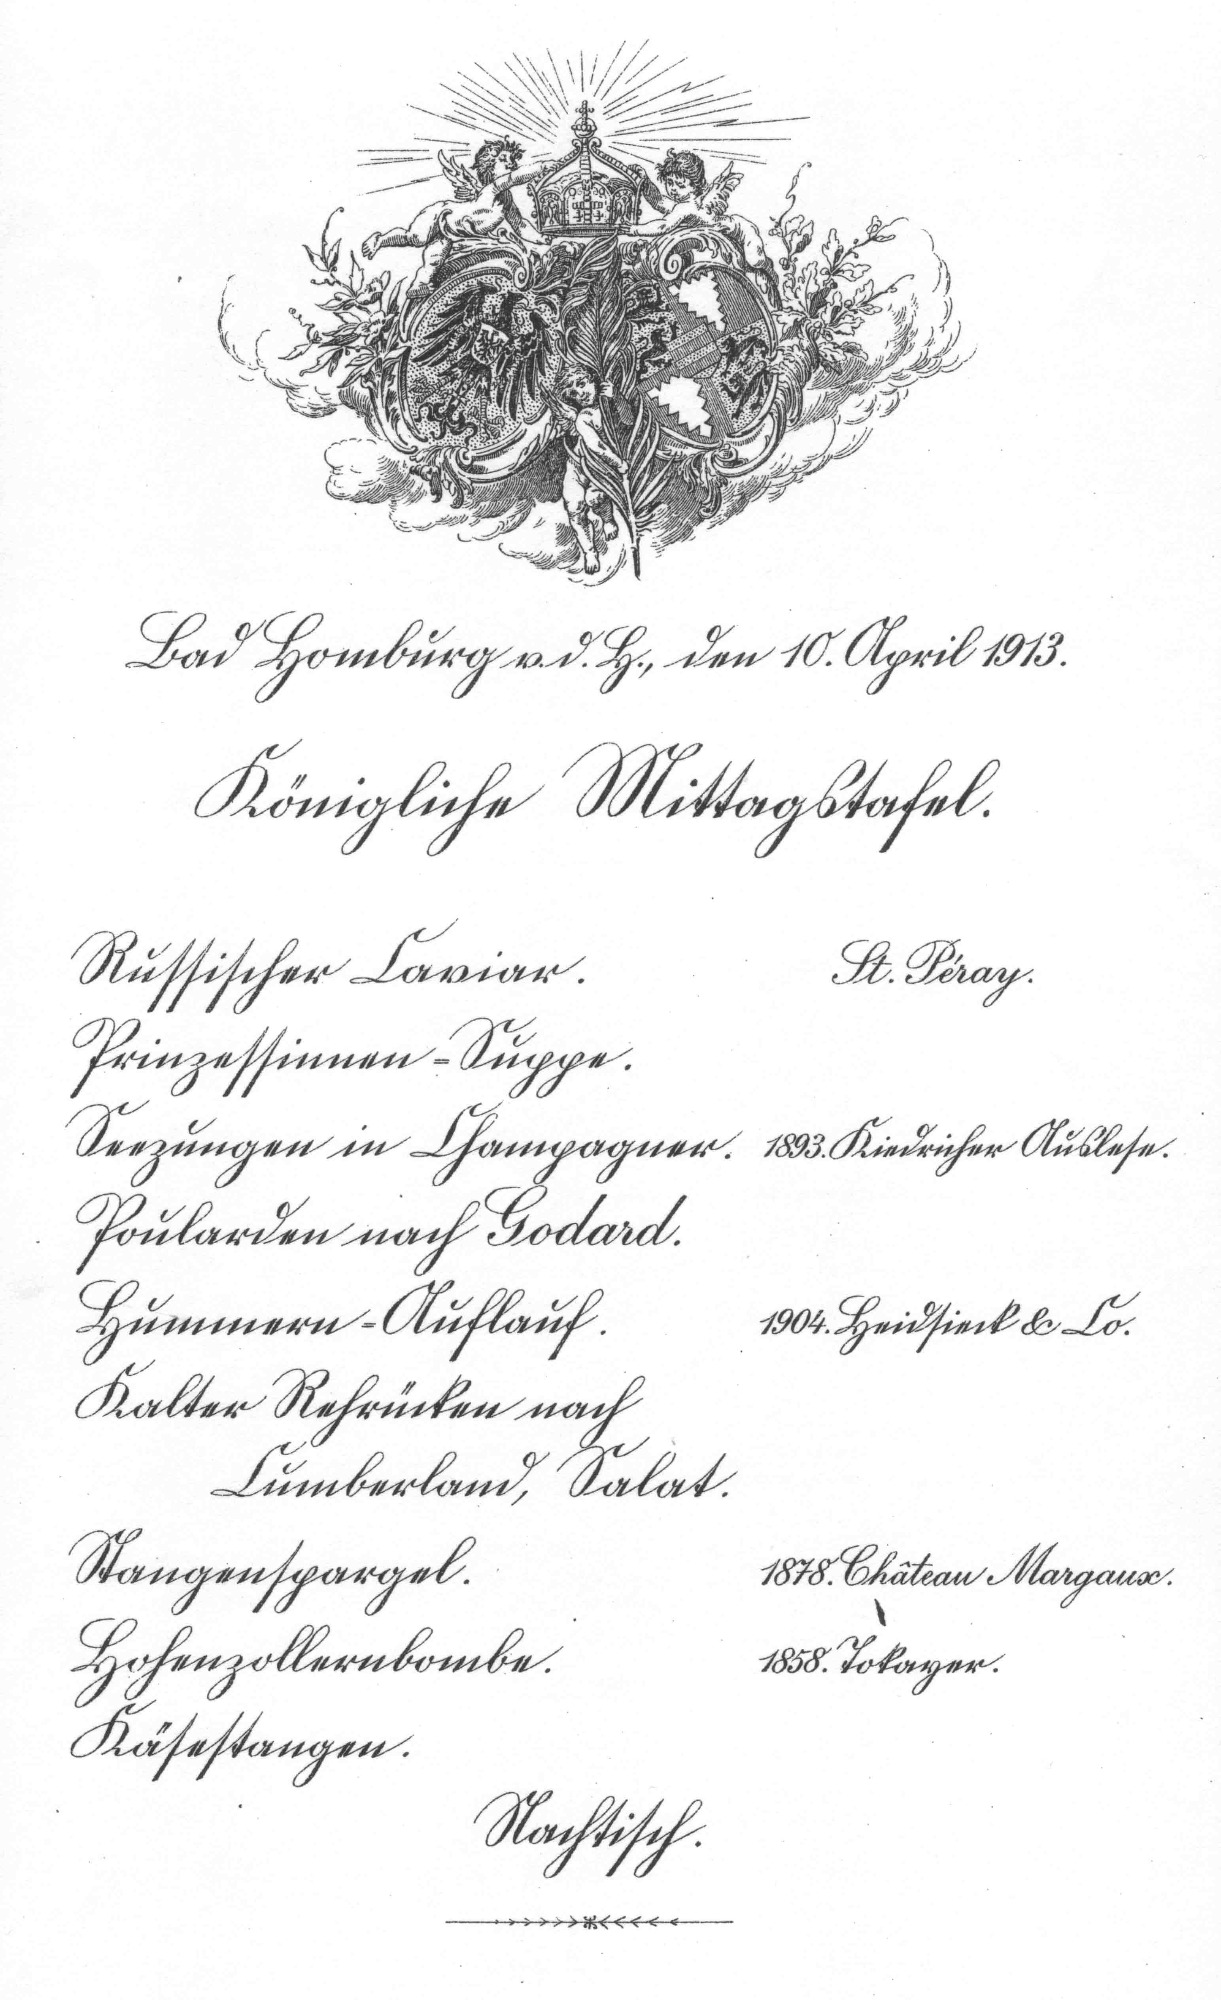 Bad Homburg v. d. H., den 10. April 1913.
Königliche Mittagstafel.
Russischer Caviar. St. Péray.
Prinzessinnen-Suppe.
Seezungen in Champagner. 1893. Kiedricher Auslese.
Poularden nach Godard.
Hummern-Auflauf. 1904. Heidsieck & Co.
Kalter Rehrücken nach
Cumberland, Salat.
Stangenspargel. 1878. Château Margaux.
Hohenzollernbombe. 1858. Tokayer.
Käsestangen.
Nachtisch.